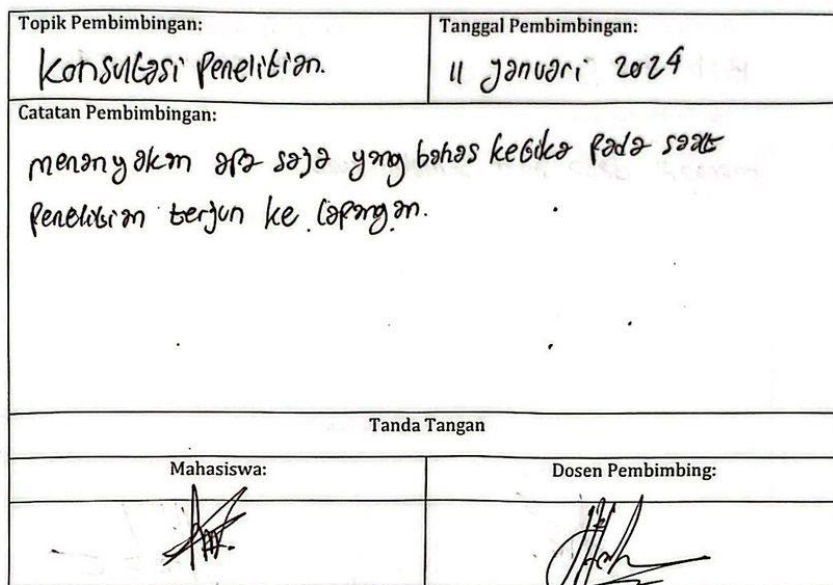 Topik Pembimbingan:
Tanggal Pembimbingan:
Konsultasi Penelitian.
11 Januari 2024
Catatan Pembimbingan:
menanyakan apa saja yang bahas ketika pada saat
Penelitian terjun ke lapangan.
Tanda Tangan
Mahasiswa:
Dosen Pembimbing: